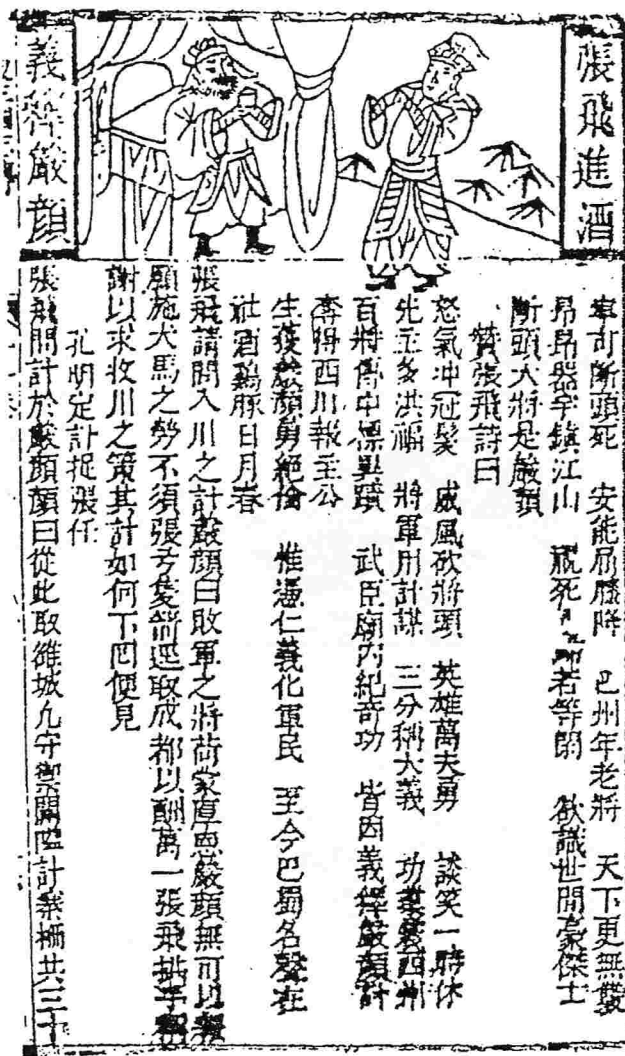 張飛進酒
義釋嚴顏
寧可斷頭死 安能屈膝降 巴州年老將 天下更無雙
昂昂器宇鎮江山 死 若等閑 欲識世間豪傑士
斷頭大將是嚴顏
贊張飛詩曰
怒氣冲冠髮 威風砍將頭 英雄萬夫勇 談笑一時休
先主多洪福 將軍用計謀 三分稱大義 功業蓋西州
百將傳中標異蹟 武臣廟內紀奇功 皆因義釋嚴顏計
奪得西川報主公
生獲嚴顏勇絕倫 惟憑仁義化軍民 至今巴蜀名聲在
社酒鷄豚日月春
張飛請問入川之計嚴顏曰敗軍之將荷蒙厚恩嚴顏無可以報
願施犬馬之勞不須張弓隻箭逕取成都以酬萬一張飛拱手稱
謝以求收川之策其計如何下囬便見
孔明定計捉張任
張飛問計於嚴顏顏曰從此取雒城凡守禦關隘計寨柵共三十